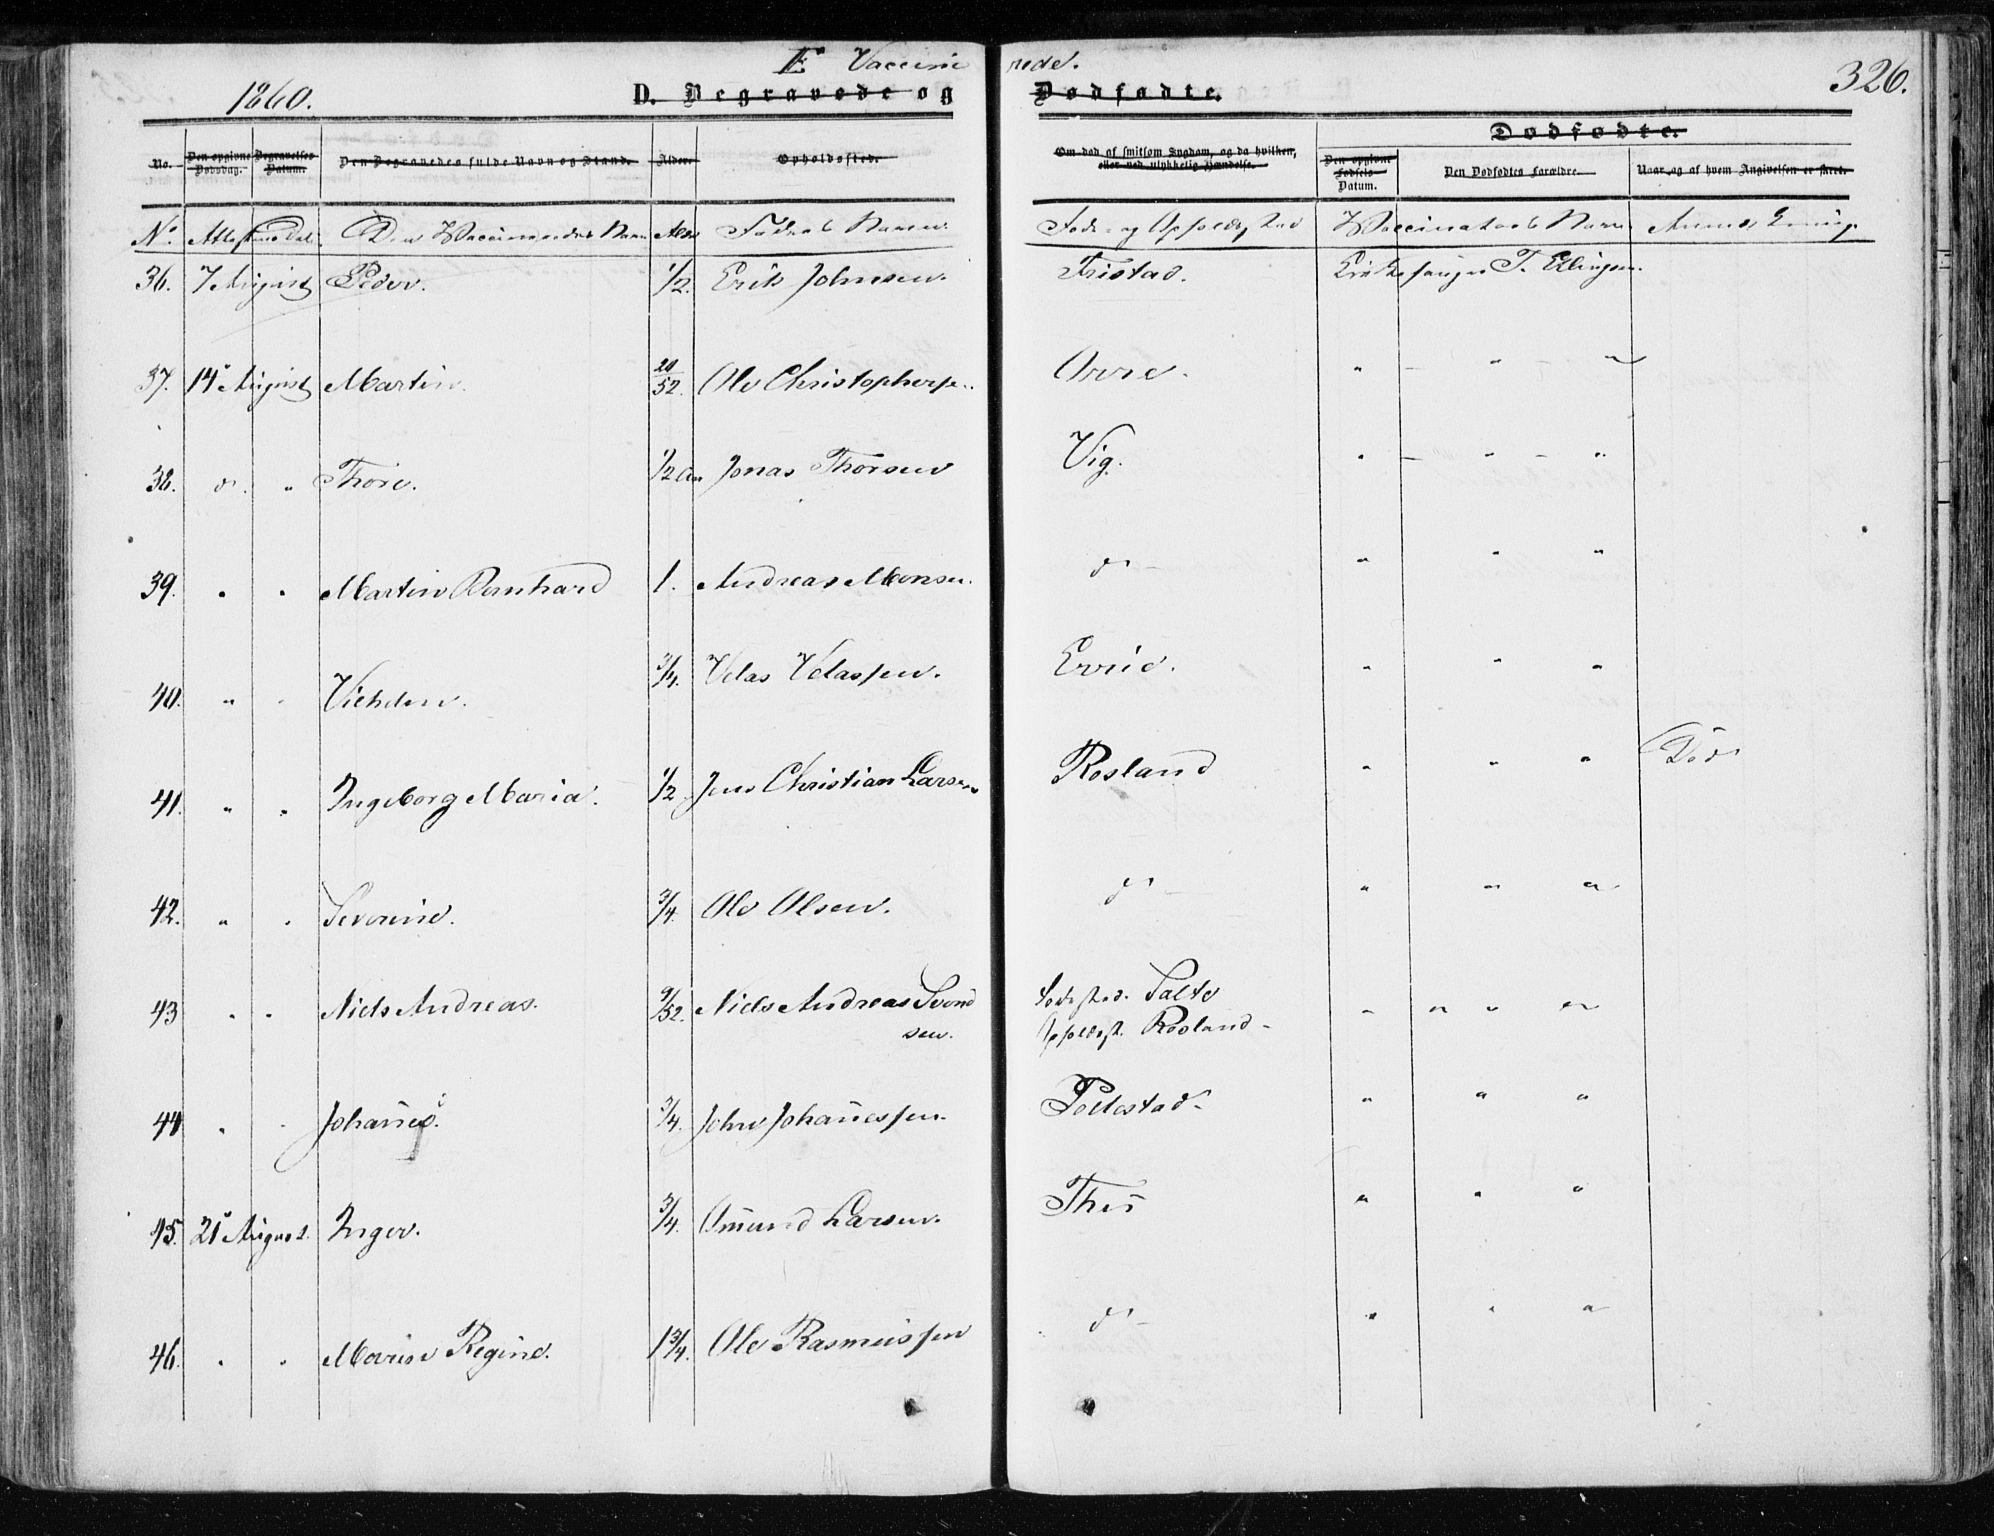 E Vaccinerede.
1860. D. Begravede og Dødfødte. 326.
Dødfødte.
No. Den opgivne Dødsdag. Begravelses-Datum. Den Begravedes fulde Navn og Stand. Alder. Opholdssted. Om død af smitsom Sygdom, og da hvilken, eller ved ulykkelig Hændelse. Den opgivne Fødsels-Datum. Den Dødfødtes Forældre. Naar og af hvem Angivelsen er skeet.
No. Navn Alder Faders Navn Vaccinateurs Navn
36. 7 August Peder. 1/2. Erik Johnsen. Tristad. T. Ellingsen.
37. 14 August Martin. 20/52. Ole Christophersen. Orre. " — " — "
38. do. " Thore. 1/2 Aar Jonas Thorsen Vig. " — " — "
39. " " Martin Bernhard 1. Andreas Monsen. do — " " "
40. " " 3/4. Velas Velassen. " " "
41. " " Ingeborg Maria. 1/2. Jens Christian Larsen Rosland " " " Død
42. " " Severine. 3/4. Ole Olsen. do — " " "
43 " " Niels Andreas. 9/52. Niels Andreas Svendsen. Fødested. Salte
Opholdsst. Rosland - " " " "
44 " " Johanes. 3/4. John Johanessen. Pollestad. " " "
45. 21 August. Inger. 3/4. Omund Larsen. Thu " " "
46. " " Regine. 1 3/4. Ole Rasmussen do — " " "